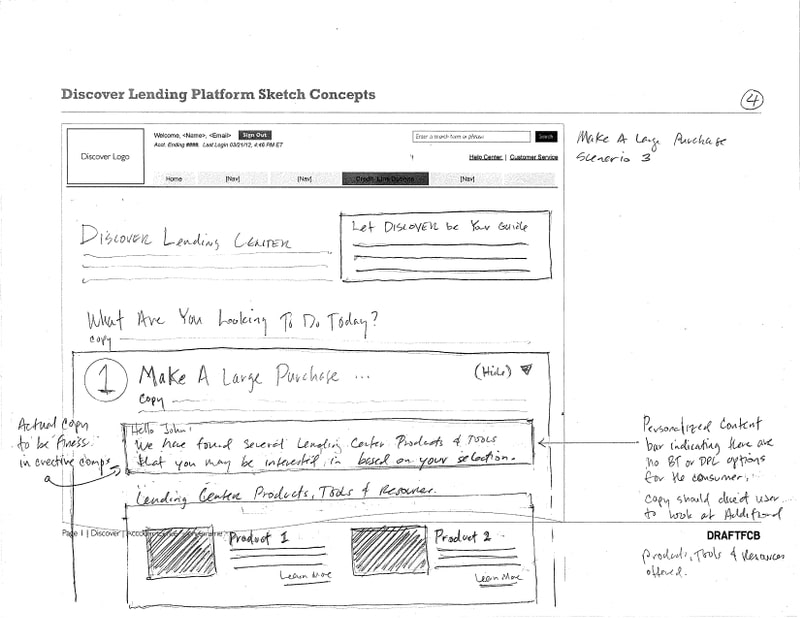 Discover Lending Platform Sketch Concepts
4
Discover Logo
Welcome, <Name>, <Email> Sign Out
Acct. Ending ####. Last Login 03/21/12, 4:40 PM ET
Enter a search term or phrase Search
Help Center | Customer Service
Home [Nav] [Nav] Credit Line Options [Nav]
Make A Large Purchase
Scenario 3
DISCOVER Lending CENTER
Let DISCOVER be Your Guide
What Are You Looking To Do Today?
copy
1 Make A Large Purchase ... (Hide)
Copy
Actual copy
to be finess
in creative comps
Hello John,
We have found several Lending Center Products & Tools
that you may be interested in based on your selection.
Personalized Content
bar indicating there are
no BT or DPL options
for the consumer.
Copy should direct user
to look at Additional
Products, Tools & Resources
offered.
Lending Center Products, Tools & Resources.
Page 1 | Discover |
DRAFTFCB
Product 1
Learn More
Product 2
Learn More